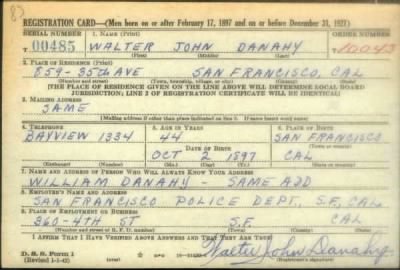 83
REGISTRATION CARD—(Men born on or after February 17, 1897 and on or before December 31, 1921)
SERIAL NUMBER 1. NAME (Print) ORDER NUMBER
T 00485 WALTER JOHN DANAHY 10043
(First) (Middle) (Last)
2. PLACE OF RESIDENCE (Print)
859-35th AVE SAN FRANCISCO, CAL
(Number and street) (Town, township, village, or city) (County) (State)
[THE PLACE OF RESIDENCE GIVEN ON THE LINE ABOVE WILL DETERMINE LOCAL BOARD
JURISDICTION; LINE 2 OF REGISTRATION CERTIFICATE WILL BE IDENTICAL]
3. MAILING ADDRESS
SAME
(Mailing address if other than place indicated on line 2. If same insert word same)
4. TELEPHONE 5. AGE IN YEARS 6. PLACE OF BIRTH
BAYVIEW 1334 44 SAN FRANCISCO
DATE OF BIRTH (Town or county)
OCT 2 1897 CAL
(Exchange) (Number) (Mo.) (Day) (Yr.) (State or country)
7. NAME AND ADDRESS OF PERSON WHO WILL ALWAYS KNOW YOUR ADDRESS
WILLIAM DANAHY - SAME ADD
8. EMPLOYER'S NAME AND ADDRESS
SAN FRANCISCO POLICE DEPT., S.F, CAL
9. PLACE OF EMPLOYMENT OR BUSINESS
360-4TH ST S.F. CAL
(Number and street or R. F. D. number) (Town) (County) (State)
I AFFIRM THAT I HAVE VERIFIED ABOVE ANSWERS AND THAT THEY ARE TRUE.
D. S. S. Form 1
(Revised 1-1-42) Walter John Danahy